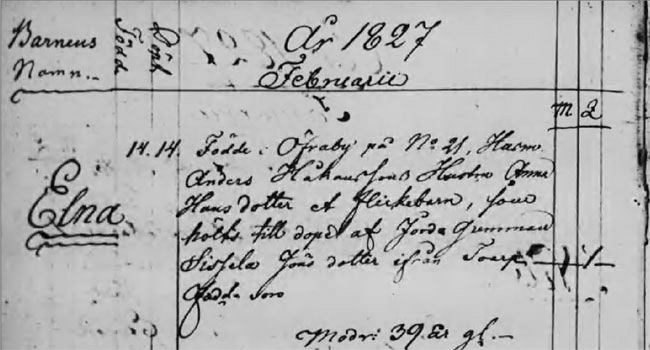 Barnens
Namn.
Född
Döpt
År 1827
Februarii
m q
14. 14. Födde i Öfraby på No 21, Husm.
Anders Håkanssons Hustru Anna
Hans dotter et flickebarn, som
hölts till dopet af Jorda Gumman
Sissela Jöns dotter ifrån Toarp 1
Elna
Modr: 39 år gl.